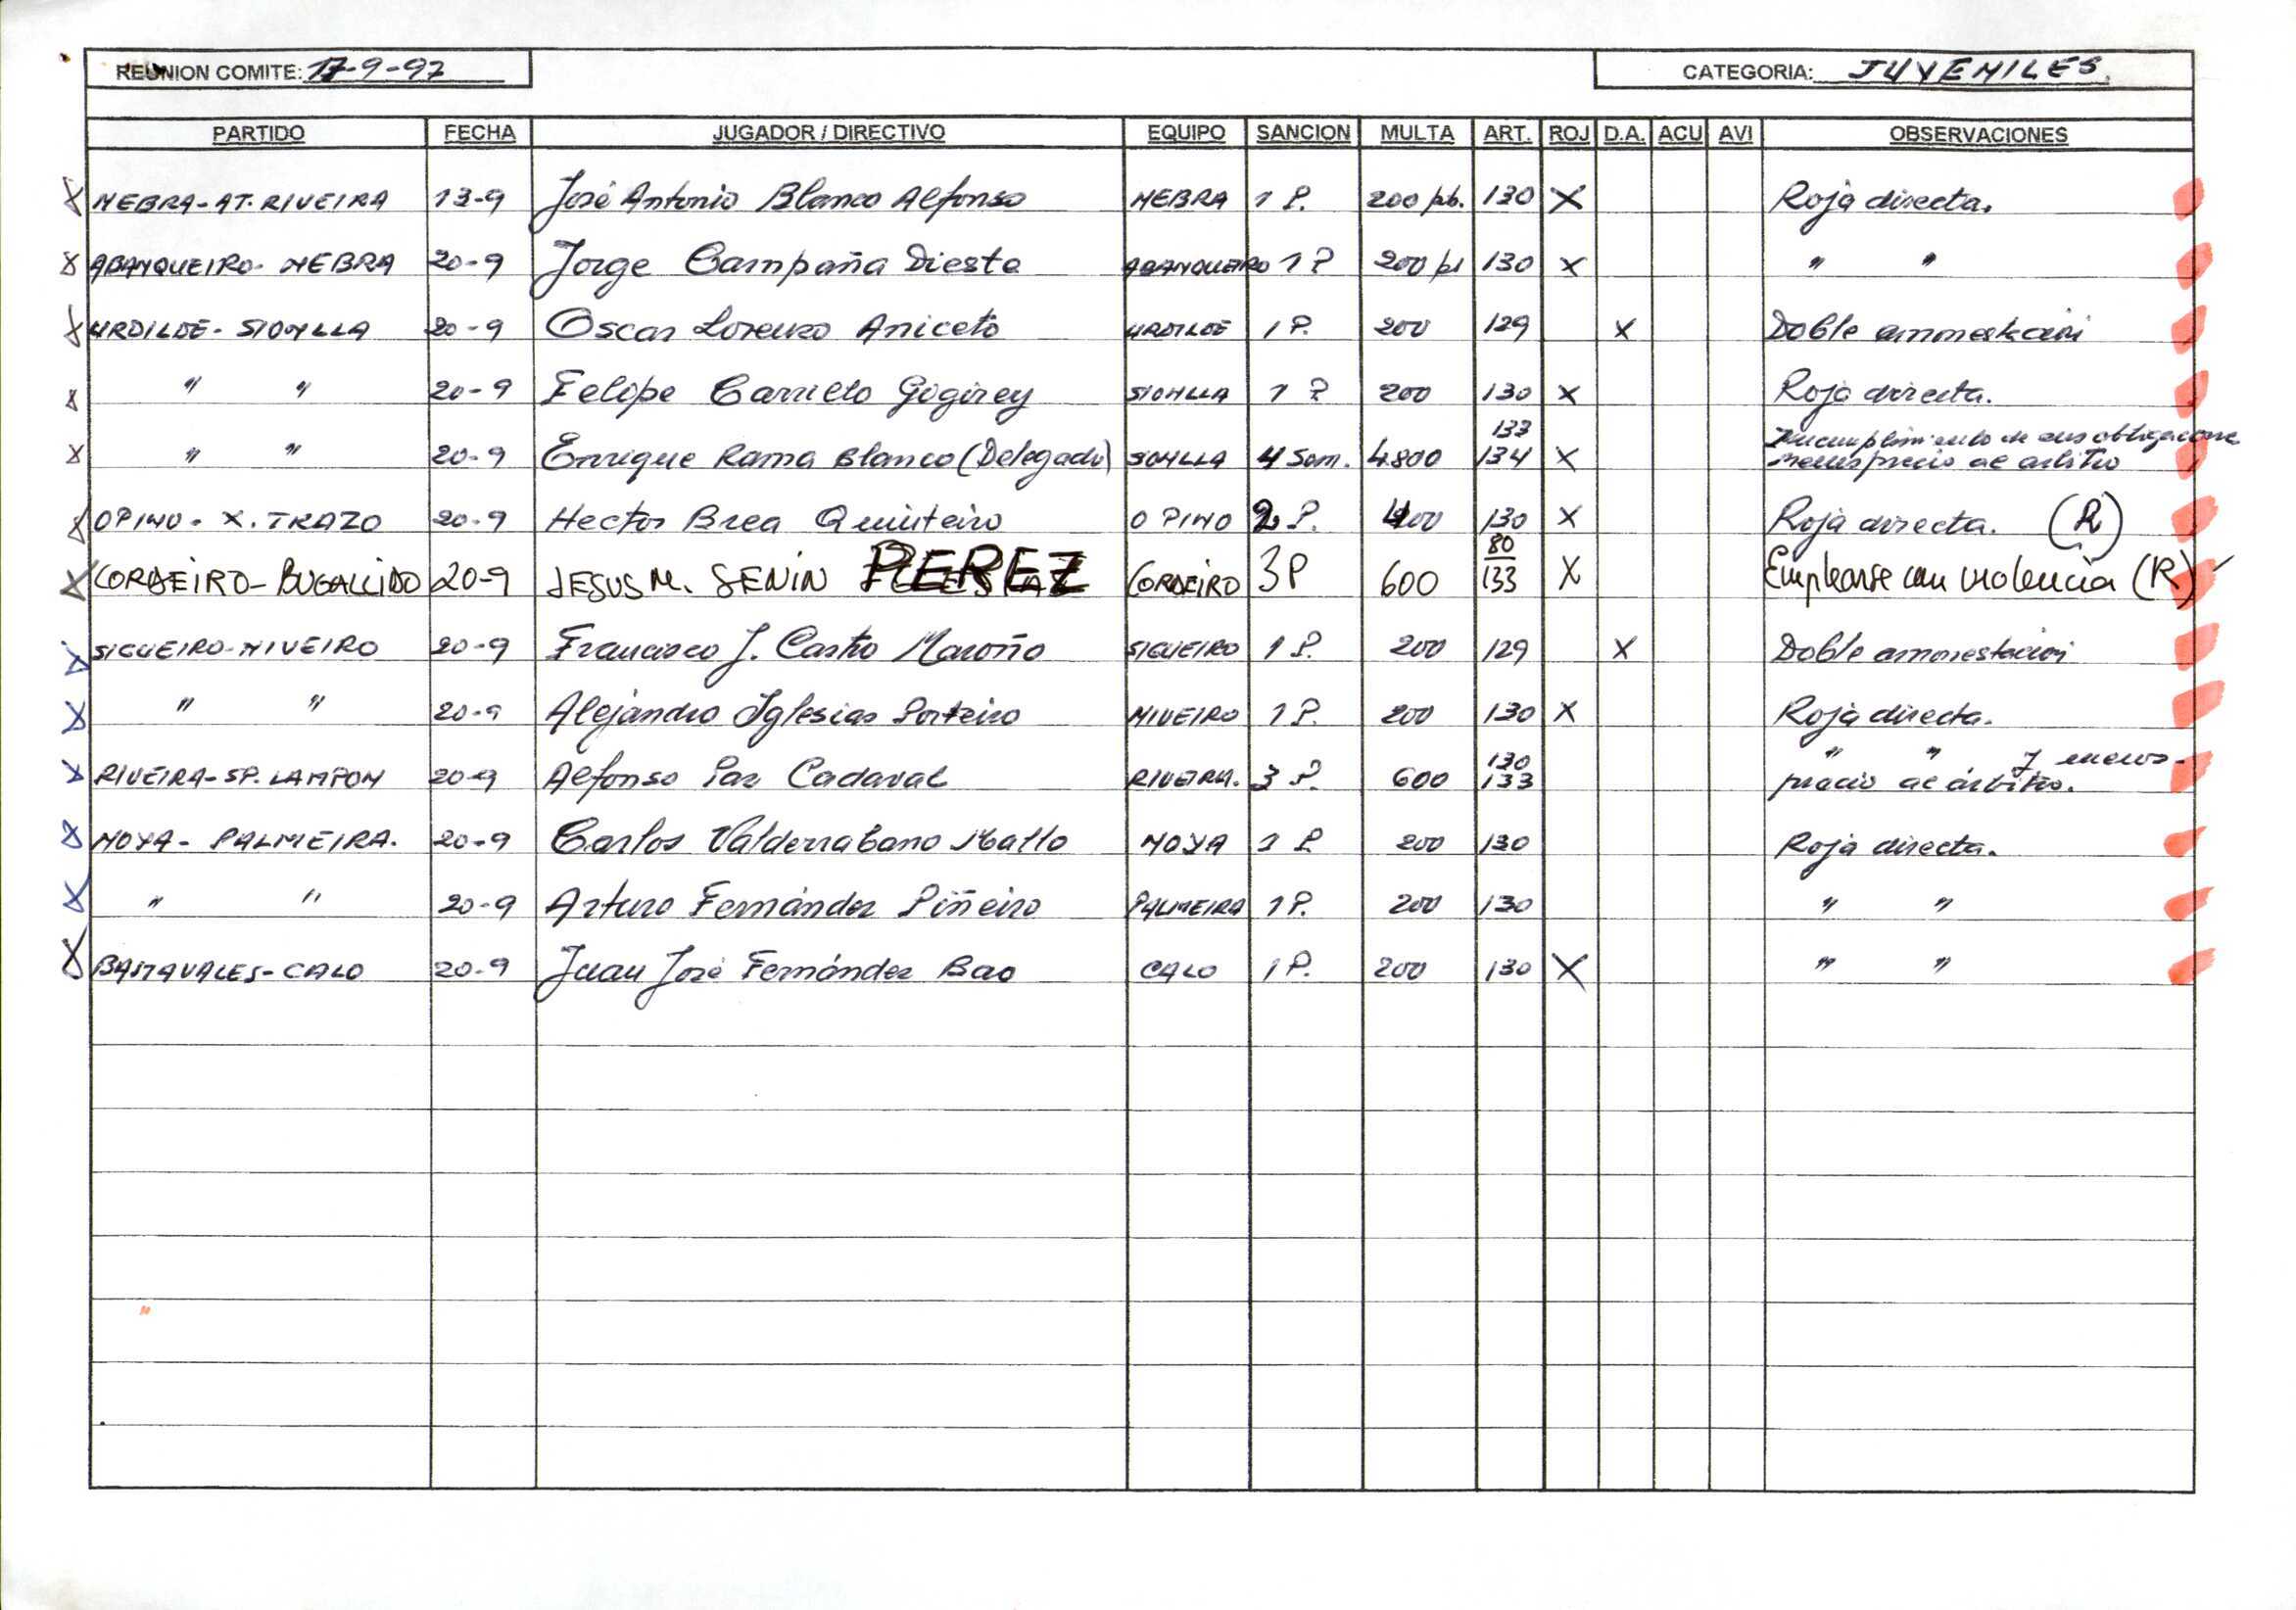 REUNION COMITE: 17-9-97 CATEGORIA: JUVENILES.
PARTIDO FECHA JUGADOR / DIRECTIVO EQUIPO SANCION MULTA ART. ROJ D.A. ACU AVI OBSERVACIONES
X NEBRA-AT. RIVEIRA 13-9 José Antonio Blanco Alfonso NEBRA 1 P. 200 pts. 130 X Roja directa.
X ABANQUEIRO- NEBRA 20-9 Jorge Campaña Dieste ABANQUEIRO 1 P 200 pts 130 X " "
X URDILDE- SIONLLA 20-9 Oscar Lorenzo Aniceto URDILDE 1 P. 200 129 X Doble amonestación
X " " 20-9 Felipe Carrillo Gogirey SIONLLA 1 P 200 130 X Roja directa.
X " " 20-9 Enrique Rama Blanco (Delegado) SIONLLA 4 Sem. 4.800 133 134 X Incumplimiento de sus obligaciones
menosprecio al arbitro
X O PINO - X. TRAZO 20-9 Hector Brea Quinteiro O PINO 2 P. 400 130 X Roja directa. (R)
X CORDEIRO- BUGALLIDO 20-9 JESUS M. SENIN PEREZ CORDEIRO 3P 600 80 133 X Emplearse con violencia (R)
X SIGUEIRO-NIVEIRO 20-9 Francisco J. Castro Maroño SIGUEIRO 1 P. 200 129 X Doble amonestación
X " " 20-9 Alejandro Iglesias Porteiro NIVEIRO 1 P. 200 130 X Roja directa.
X RIVEIRA-SP. LAMPON 20-9 Alfonso Paz Cadaval RIVEIRA. 3 P. 600 130 133 " " y menos-
precio al árbitro.
X NOYA- PALMEIRA. 20-9 Carlos Valderrabano Mallo NOYA 1 P. 200 130 Roja directa.
X " " 20-9 Arturo Fernández Piñeiro PALMEIRA 1 P. 200 130 " "
X BASTAVALES-CALO 20-9 Juan José Fernández Bao CALO 1 P. 200 130 X " "